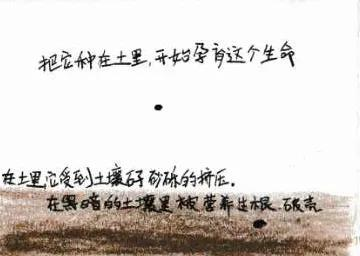 把它种在土里,开始孕育这个生命
在土里它受到土壤砂砾的挤压.
在黑暗的土壤里被营养生根 破壳